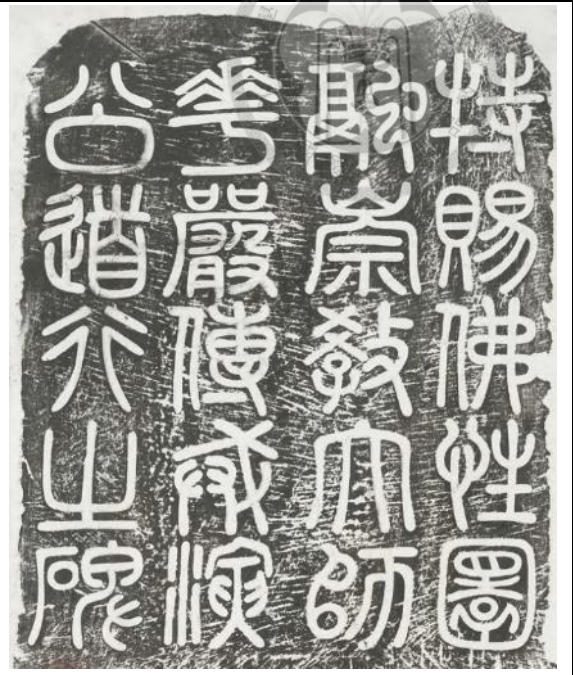 特賜佛性圓
融崇教大師
華嚴傳戒演
公道行之碑